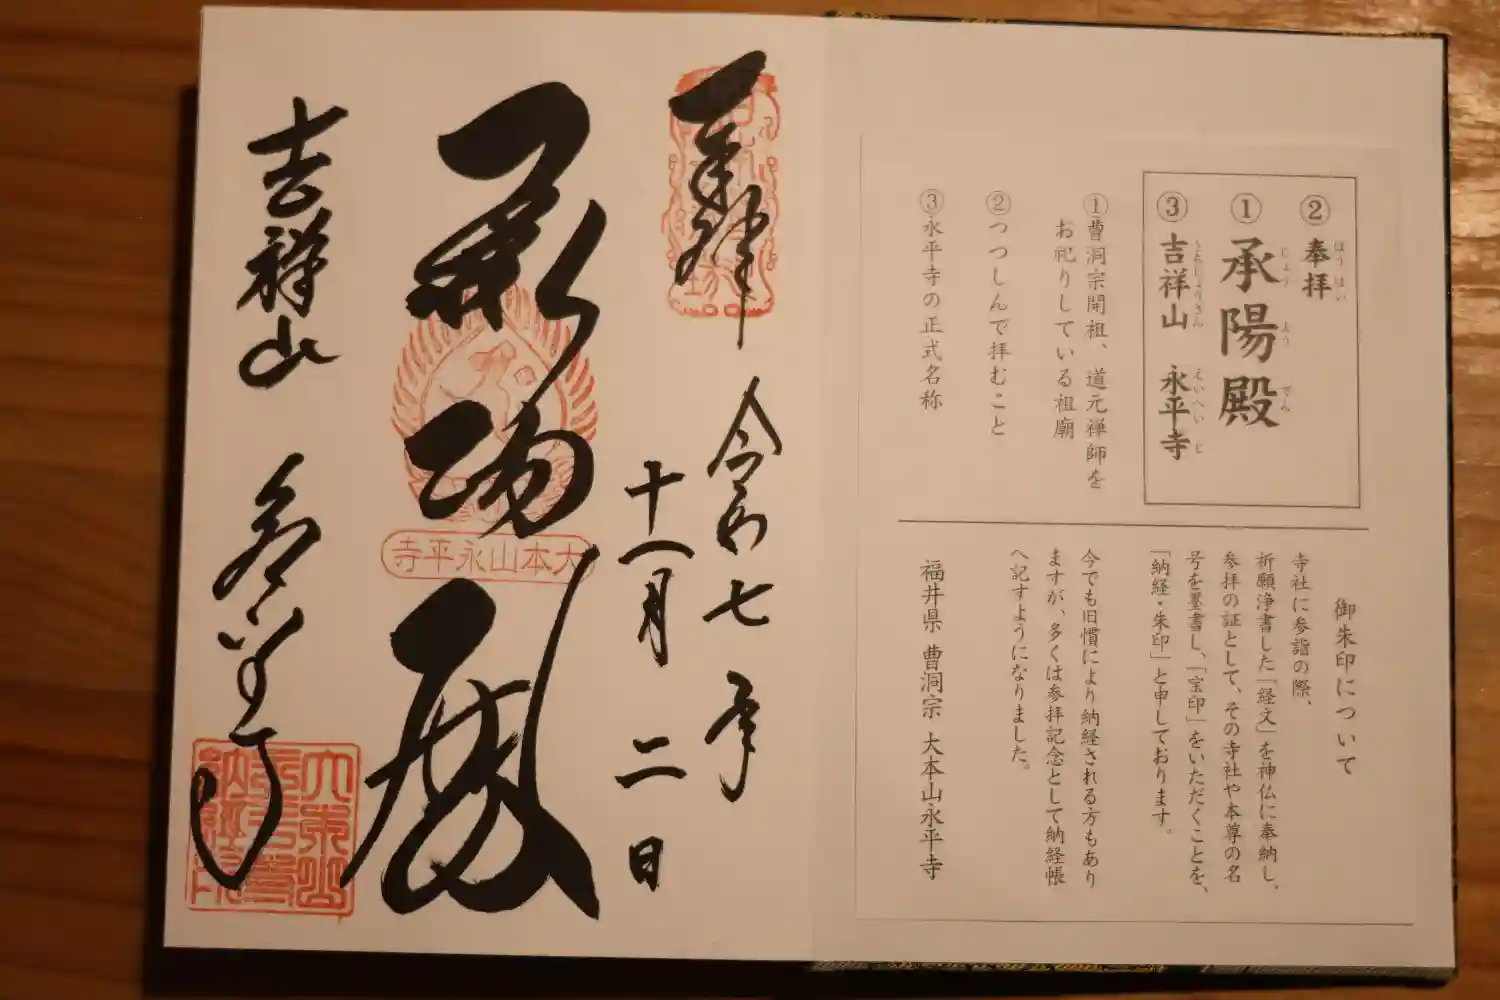 ② 奉拝
ほうはい
① 承陽殿
じょうようでん
③ 吉祥山 永平寺
きちじょうざん えいへいじ
①曹洞宗開祖、道元禅師を
お祀りしている祖廟
②つつしんで拝むこと
③永平寺の正式名称
御朱印について
寺社に参詣の際、
祈願浄書した「経文」を神仏に奉納し、
参拝の証として、その寺社や本尊の名
号を墨書し、「宝印」をいただくことを、
「納経・朱印」と申しております。
今でも旧慣により納経される方もあり
ますが、多くは参拝記念として納経帳
へ記すようになりました。
福井県 曹洞宗 大本山永平寺
奉拝
令和七年
十一月二日
承陽殿
寺平永山本大
吉祥山 永平寺